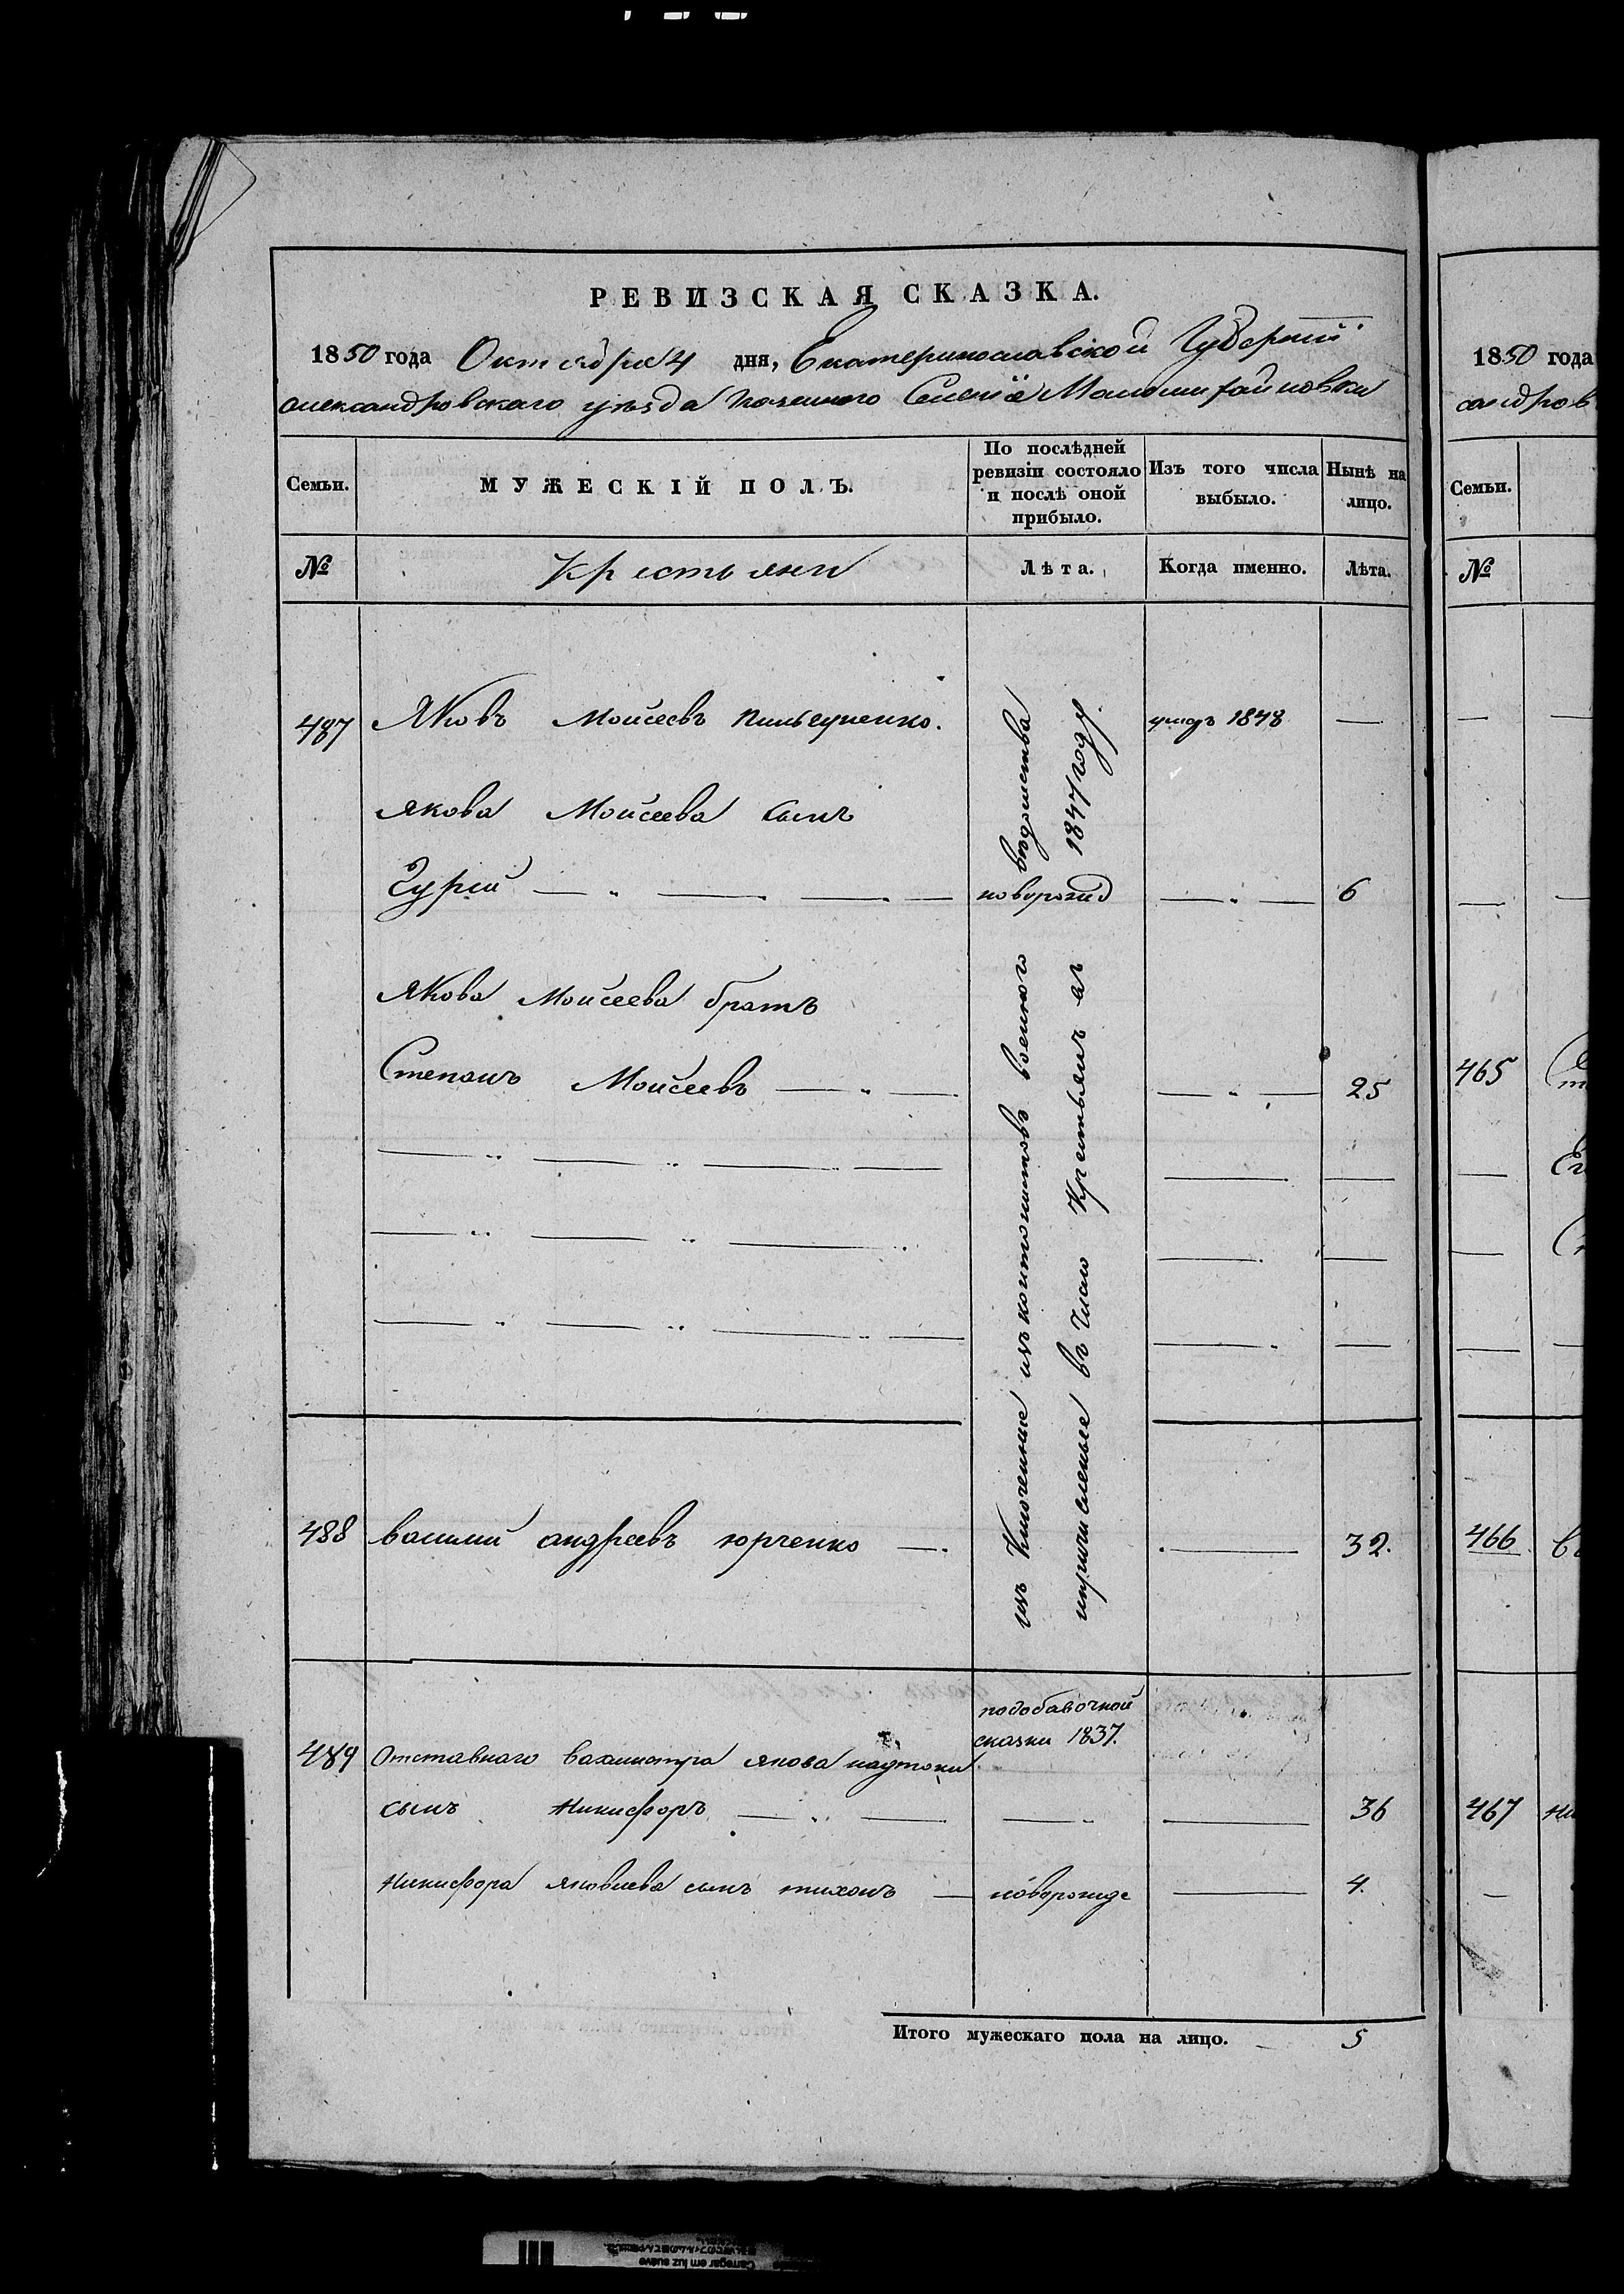 РЕВИЗСКАЯ СКАЗКА.
1850 года Октября 4 дня, Екатеринославской Губернии
александровского уезда казенного Селенія
Семьи.
МУЖЕСКІЙ ПОЛЪ.
По послѣдней ревизіи состояло и послѣ оной прибыло.
Изъ того числа выбыло.
Нынѣ на лицо.
№
Крестьяни
Лѣта.
Когда именно.
Лѣта.
487 Яковъ Моисеевъ умер 1848 —
Якова Моисеева сынъ
Гурій — " — — — новорожд — " — 6
Якова Моисеева братъ
Степанъ Моисеевъ — " — — " — 25
изъ военного ведомства
причисленые въ число Крестьянъ 1847 году.
488 василий андреевъ юрченко — . — 32.
подобавочной
сказки 1837.
489 Отставнаго вахмистра якова надточи
сынъ Никифоръ — " — — " — 36
Никифора яковлева сынъ тихонъ — новорожде — 4.
Итого мужескаго пола на лицо. 5
1850 года
сандров
Семьи.
№
465
466
467